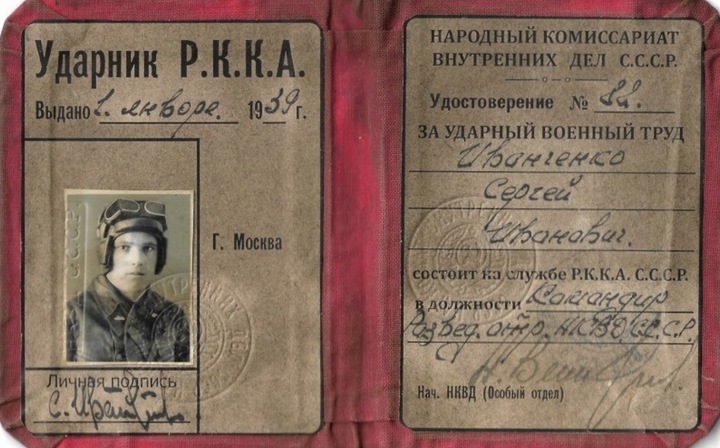 Ударник Р.К.К.А.
Выдано 1. января. 1939 г.
Г. Москва
Личная подпись
НАРОДНЫЙ КОМИССАРИАТ
ВНУТРЕННИХ ДЕЛ С.С.С.Р.
Удостоверение № 82.
ЗА УДАРНЫЙ ВОЕННЫЙ ТРУД
Иванченко
Сергей
Иванович.
состоит на службе Р.К.К.А. С.С.С.Р.
в должности Командир
Развед. отр. НКВД С.С.С.Р.
Нач. НКВД (Особый отдел)